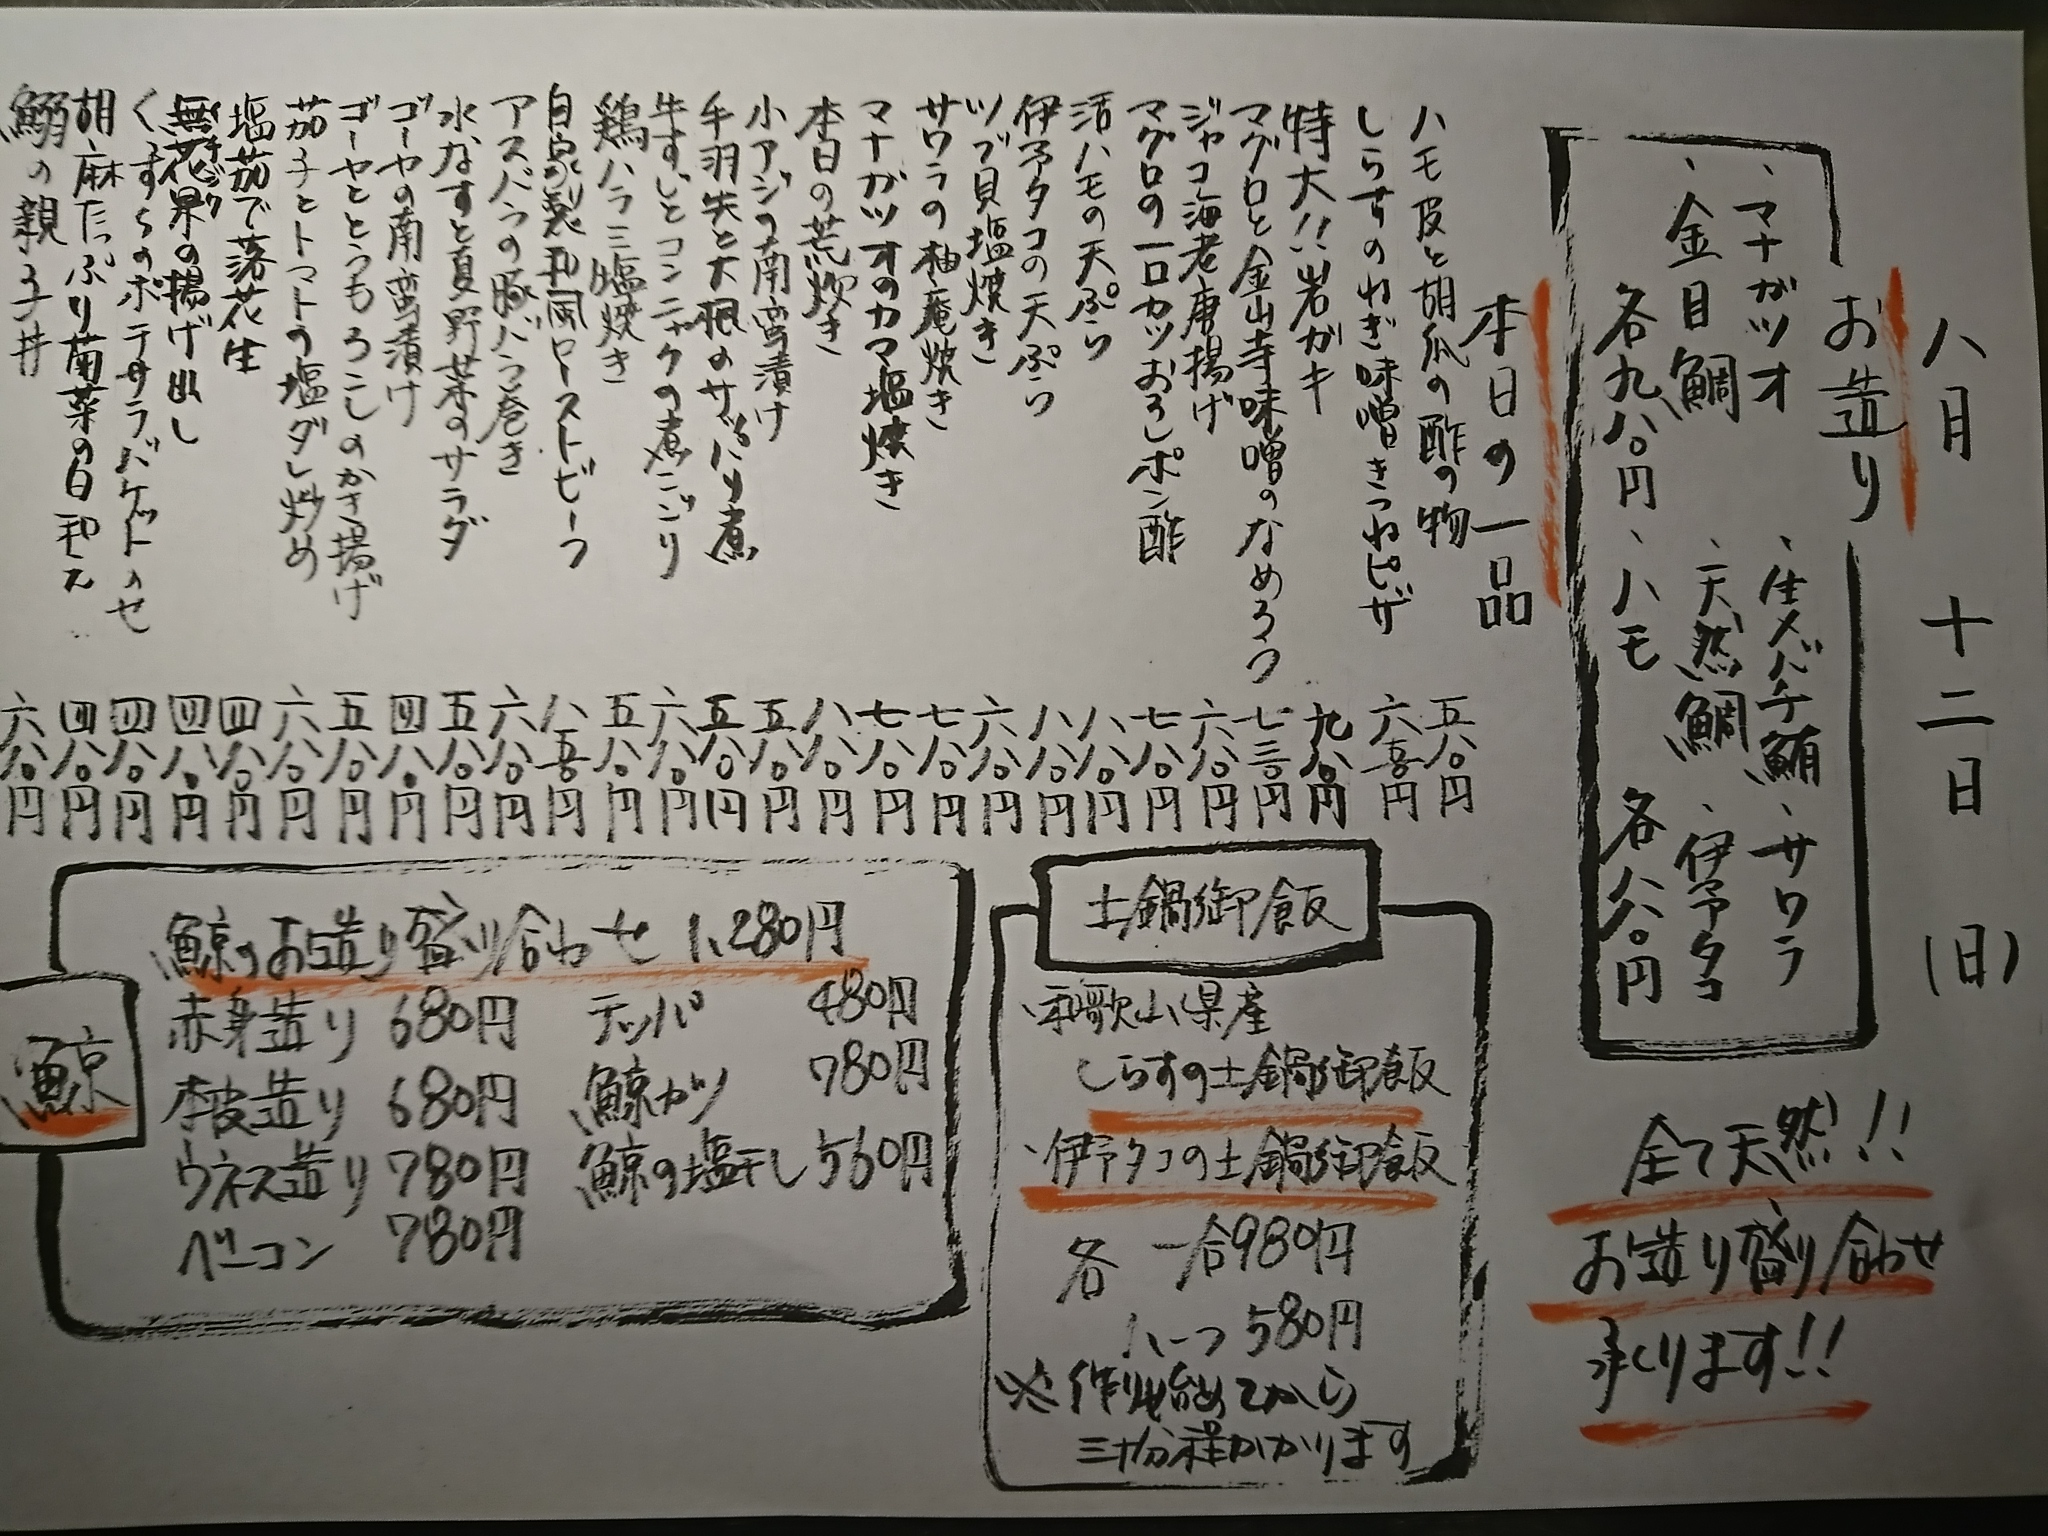 八月 十二日 (日)
お造り
、マナガツオ 、生メバチ鮪 、サワラ
、金目鯛 、天然鯛 、伊予タコ
各九八〇円 、ハモ 各八八〇円
全て天然!!
お造り盛り合わせ
承ります!!
本日の一品
ハモ皮と胡瓜の酢の物 五八〇円
しらすのねぎ味噌きつねピザ 六五〇円
特大!!岩ガキ 九八〇円
マグロと金山寺味噌のなめろう 七三〇円
ジャコ海老唐揚げ 六八〇円
マグロの一口カツおろしポン酢 七八〇円
活ハモの天ぷら 八八〇円
伊予タコの天ぷら 八八〇円
ツブ貝塩焼き 六八〇円
サワラの柚庵焼き 七八〇円
マナガツオのカマ塩焼き 七八〇円
本日の荒炊き 八八〇円
小アジの南蛮漬け 五八〇円
手羽先と大根のサッパリ煮 五八〇円
牛すじとコンニャクの煮こごり 六八〇円
鶏ハラミ塩焼き 五八〇円
自家製和風ローストビーフ 八五〇円
アスパラの豚バラ巻き 六八〇円
水なすと夏野菜のサラダ 五八〇円
ゴーヤの南蛮漬け 四八〇円
ゴーヤととうもろこしのかき揚げ 五八〇円
茄子とトマトの塩ダレ炒め 六八〇円
塩茹で落花生 四八〇円
無花果の揚げ出し 四八〇円
イチジク
くずし豆のポテサラバケットのせ 四八〇円
胡麻たっぷり菊菜の白和え 四八〇円
鰯の親子丼 六八〇円
土鍋御飯
、和歌山県産
しらすの土鍋御飯
、伊予タコの土鍋御飯
各 一合980円
ハーフ580円
※作り始めてから
三十分程かかります
鯨
鯨のお造り盛り合わせ 1,280円
赤身造り 680円 テッパ 480円
本皮造り 680円 鯨カツ 780円
ウネス造り 780円 鯨の塩干し 560円
ベーコン 780円